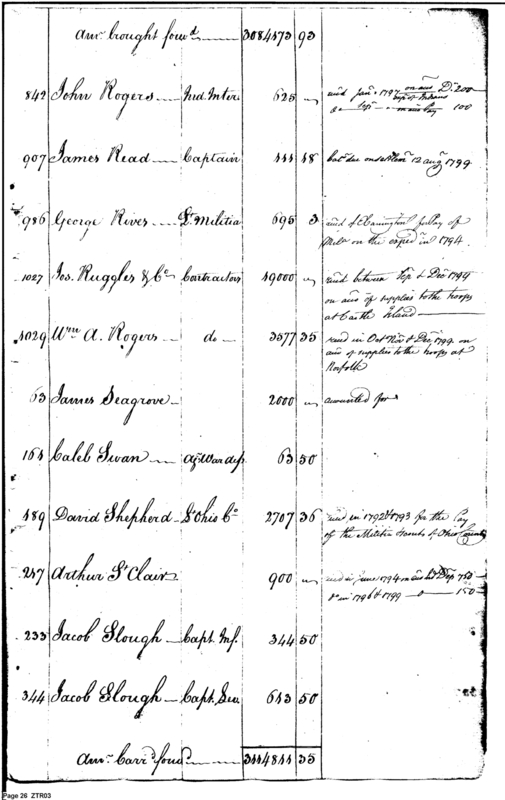 Amt. brought forwd. 3084173 93
842 John Rogers Ind. Inter 625 " recd. Jany. 1797 on accot Do. 200
Sepr. 100
907 James Read Captain 444 48 bal: due on settlemt 12 augt 1799
986 George Rives Lt. Militia 695 3 recd of Carrington for Pay of
Mila on the expedn in 1794.
1027 Jos. Ruggles & Co. Contractors 49000 " recd between Sep & Decr 1794
on acct of supplies to the troops
at Castle Island
1029 Wm. A. Rogers do 3577 35 recd in Oct Nov & Decr 1794 on
acct of supplies to the troops at
Norfolk
63 James Seagrove 2000 " accounted for
164 Caleb Swan War dep. 63 50
489 David Shepherd Lt. Ohio Co. 2707 36 recd in 1792 & 1793 for the Pay
of the Militia Scouts of Ohio County
247 Arthur St. Clair 900 " recd in June 1794 750
Do in 1796 & 1799 150
233 Jacob Slough Capt. Inf. 344 50
344 Jacob Slough Capt. 643 50
Amt. Carrd. forwd. 3144844 35
Page 26 ZTR03